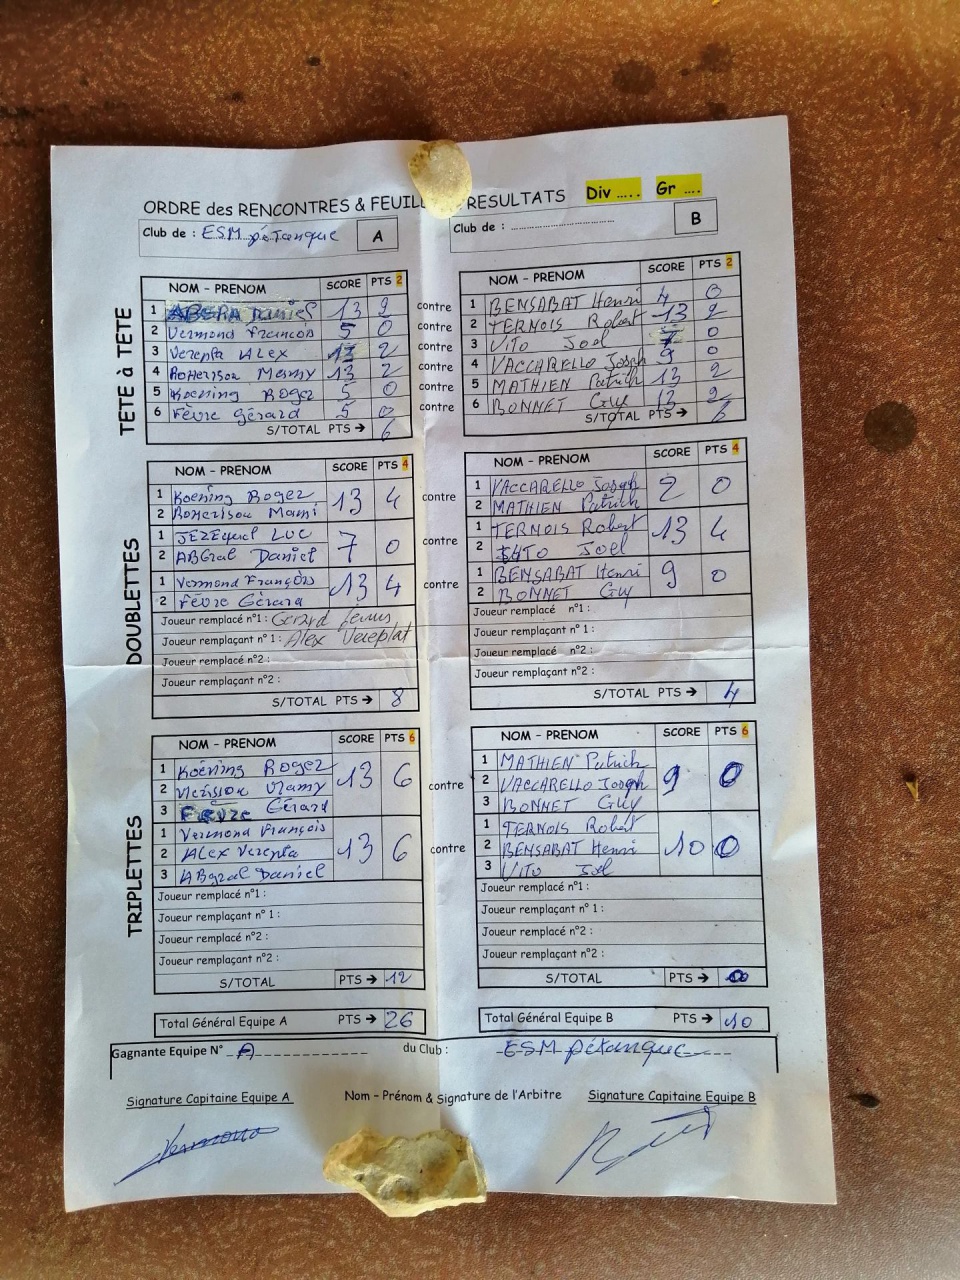 ORDRE des RENCONTRES & FEUIL RESULTATS Div ..... Gr ....
Club de : ESM pétanque A
Club de : .............................. B
TETE à TETE
NOM - PRENOM SCORE PTS 2
1 Daniel 13 2
2 Vermond François 5 0
3 Verepta ALEX 13 2
4 Mamy 13 2
5 Koening Roger 5 0
6 Fèvre Gérard 5 0
S/TOTAL PTS → 6
contre
contre
contre
contre
contre
contre
NOM - PRENOM SCORE PTS 2
1 BENSABAT Henri 4 0
2 TERNOIS Robert 13 2
3 VITO Joel 7 0
4 VACCARELLO Joseph 9 0
5 MATHIEN Patrich 13 2
6 BONNET Guy 13 2
S/TOTAL PTS → 6
DOUBLETTES
NOM - PRENOM SCORE PTS 4
1 Koening Roger 13 4
2 Mami
1 JEZEQUEL LUC 7 0
2 ABGral Daniel
1 Vermond François 13 4
2 Fèvre Gérard
Joueur remplacé n°1 : Gerard
Joueur remplaçant n° 1 : Alex Vereplat
Joueur remplacé n°2 :
Joueur remplaçant n°2 :
S/TOTAL PTS → 8
contre
contre
contre
NOM - PRENOM SCORE PTS 4
1 VACCARELLO Joseph 2 0
2 MATHIEN Patrich
1 TERNOIS Robert 13 4
2 Joel
1 BENSABAT Henri 9 0
2 BONNET Guy
Joueur remplacé n°1 :
Joueur remplaçant n°1 :
Joueur remplacé n°2 :
Joueur remplaçant n°2 :
S/TOTAL PTS → 4
TRIPLETTES
NOM - PRENOM SCORE PTS 6
1 Koening Roger 13 6
2
3 Fièvre Gérard
1 Vermond François 13 6
2 ALEX Verepta
3 ABgral Daniel
Joueur remplacé n°1 :
Joueur remplaçant n° 1 :
Joueur remplacé n°2 :
Joueur remplaçant n°2 :
S/TOTAL PTS → 12
contre
contre
NOM - PRENOM SCORE PTS 6
1 MATHIEN Patrich 9 0
2 VACCARELLO Joseph
3 BONNET Guy
1 TERNOIS Robert 10 0
2 BENSABAT Henri
3 VITO Joel
Joueur remplacé n°1 :
Joueur remplaçant n° 1 :
Joueur remplacé n°2 :
Joueur remplaçant n°2 :
S/TOTAL PTS → 0
Total Général Equipe A PTS → 26
Total Général Equipe B PTS → 10
Gagnante Equipe N° A du Club : ESM pétanque
Signature Capitaine Equipe A Nom - Prénom & Signature de l'Arbitre Signature Capitaine Equipe B